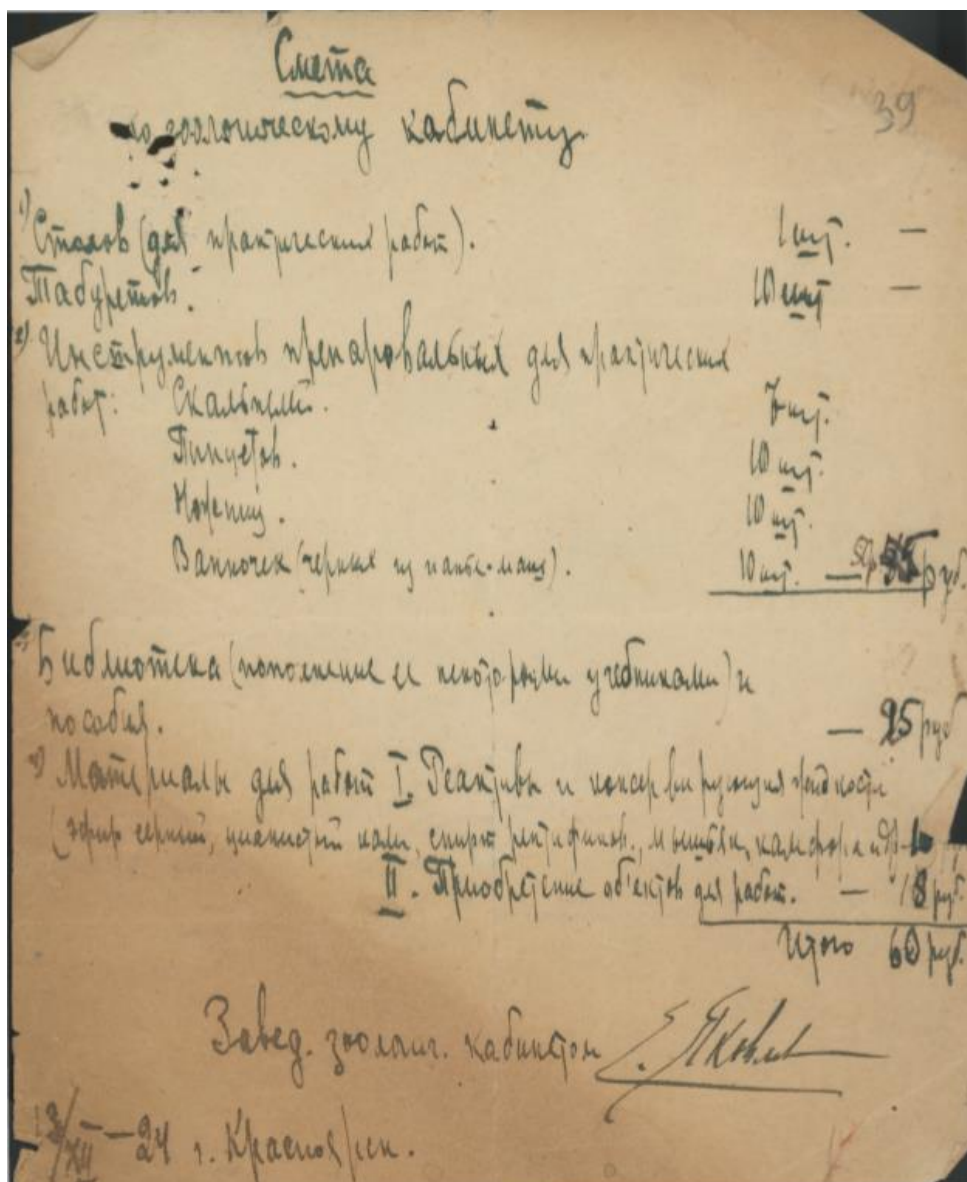 Смета
39
по зоологическому кабинету.
1) Столов (для практических работ). 1 шт. —
Табуретов. 10 шт —
2) Инструментов препаровальных для практических
работ: Скальпели. 7 шт.
Пинцетов. 10 шт.
Ножниц. 10 шт.
Ванночек (черных из папье-маше). 10 шт. — руб.
Библиотека (пополнение ее некоторыми учебниками) и
пособия. — 25 руб
Материалы для работ I. Реактивы и консервирующия жидкости
(эфир серный, цианистый кали, спирт ректификов., мышьяк, камфора и др.
II. Приобретение об'ектов для работ. — 18 руб.
Итого 60 руб.
Завед. зоолог. кабинетом Е. Яковлев
13/XII — 24 г. Красноярск.